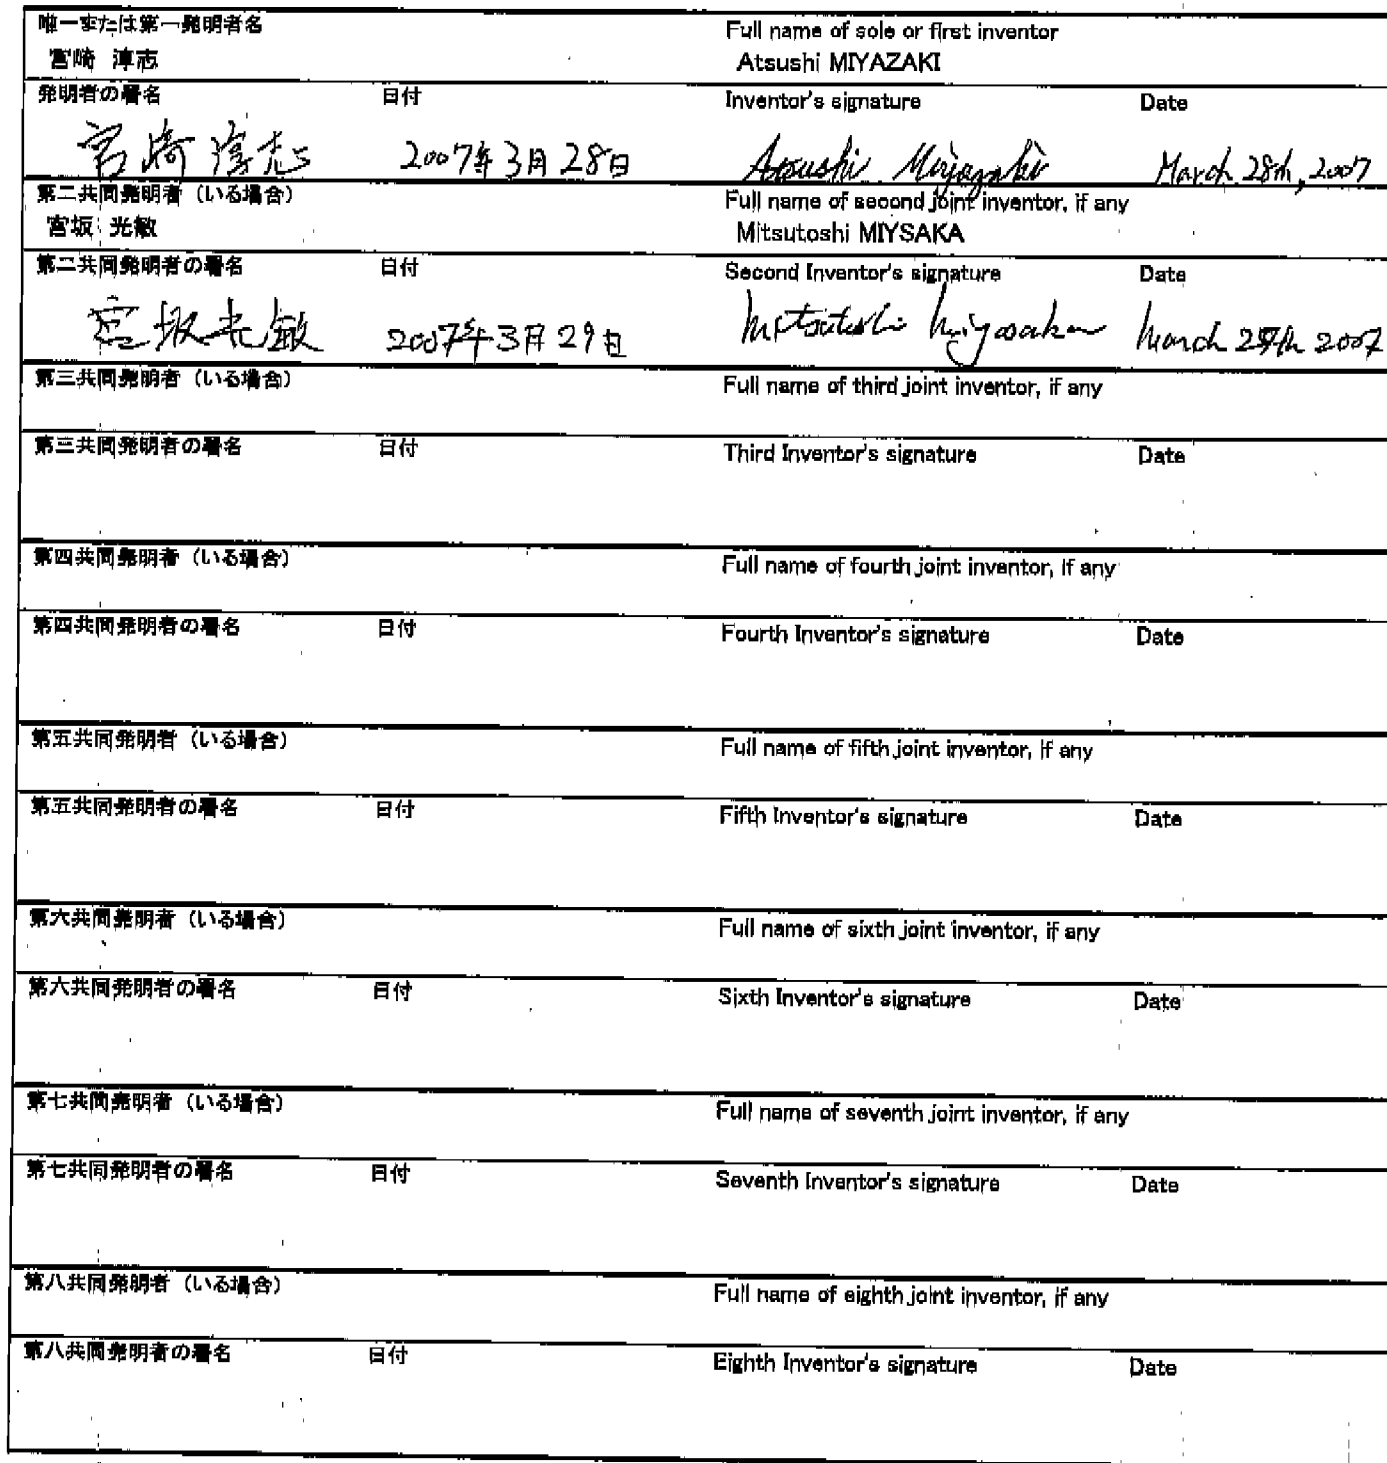 唯一または第一発明者名 Full name of sole or first inventor
宮崎 淳志 Atsushi MIYAZAKI
発明者の署名 日付 Inventor's signature Date
宮崎淳志 2007年3月28日 Atsushi Miyazaki March 28th, 2007
第二共同発明者（いる場合） Full name of second joint inventor, if any
宮坂 光敏 Mitsutoshi MIYSAKA
第二共同発明者の署名 日付 Second Inventor's signature Date
宮坂光敏 2007年3月29日 Mitsutoshi Miyasaka March 2007
第三共同発明者（いる場合） Full name of third joint inventor, if any
第三共同発明者の署名 日付 Third Inventor's signature Date
第四共同発明者（いる場合） Full name of fourth joint inventor, if any
第四共同発明者の署名 日付 Fourth Inventor's signature Date
第五共同発明者（いる場合） Full name of fifth joint inventor, if any
第五共同発明者の署名 日付 Fifth Inventor's signature Date
第六共同発明者（いる場合） Full name of sixth joint inventor, if any
第六共同発明者の署名 日付 Sixth Inventor's signature Date
第七共同発明者（いる場合） Full name of seventh joint inventor, if any
第七共同発明者の署名 日付 Seventh Inventor's signature Date
第八共同発明者（いる場合） Full name of eighth joint inventor, if any
第八共同発明者の署名 日付 Eighth Inventor's signature Date